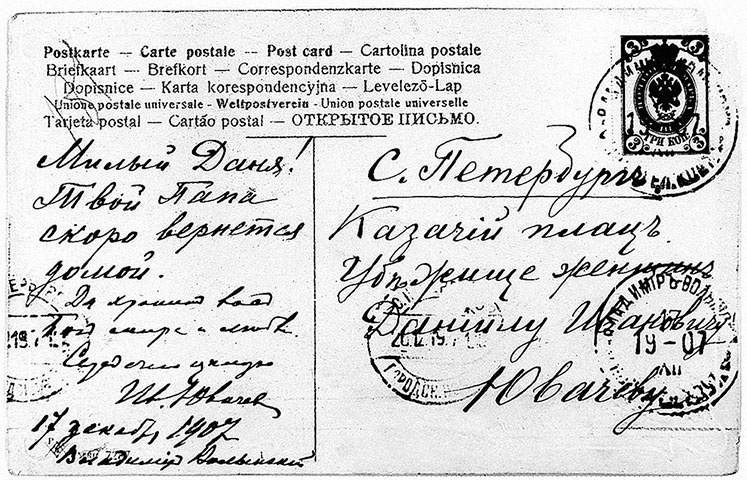 Postkarte — Carte postale — Post card — Cartolina postale
Briefkaart — Brefkort — Correspondenzkarte — Dopisnica
Dopisnice — Karta korespondencyjna — Levelező-Lap
Unione postale universale - Weltpostverein - Union postale universelle
Tarjeta postal — Cartão postal — ОТКРЫТОЕ ПИСЬМО.
Милый Даня!
Твой Папа
скоро вернется
домой.
Да хранит вас
Бог мира и любви
Ив. Ювачев
17 декаб. 1907
Владимір Волынский
С. Петербургъ
Казачій плацъ.
Убѣжище женщинъ
Даниилу Ивановичу
Ювачеву
3 3
ТРИ КОП.
3 3
ВЛАДИМІРЪ-ВОЛЫН
17
19-07
XII
ГОРОДСК